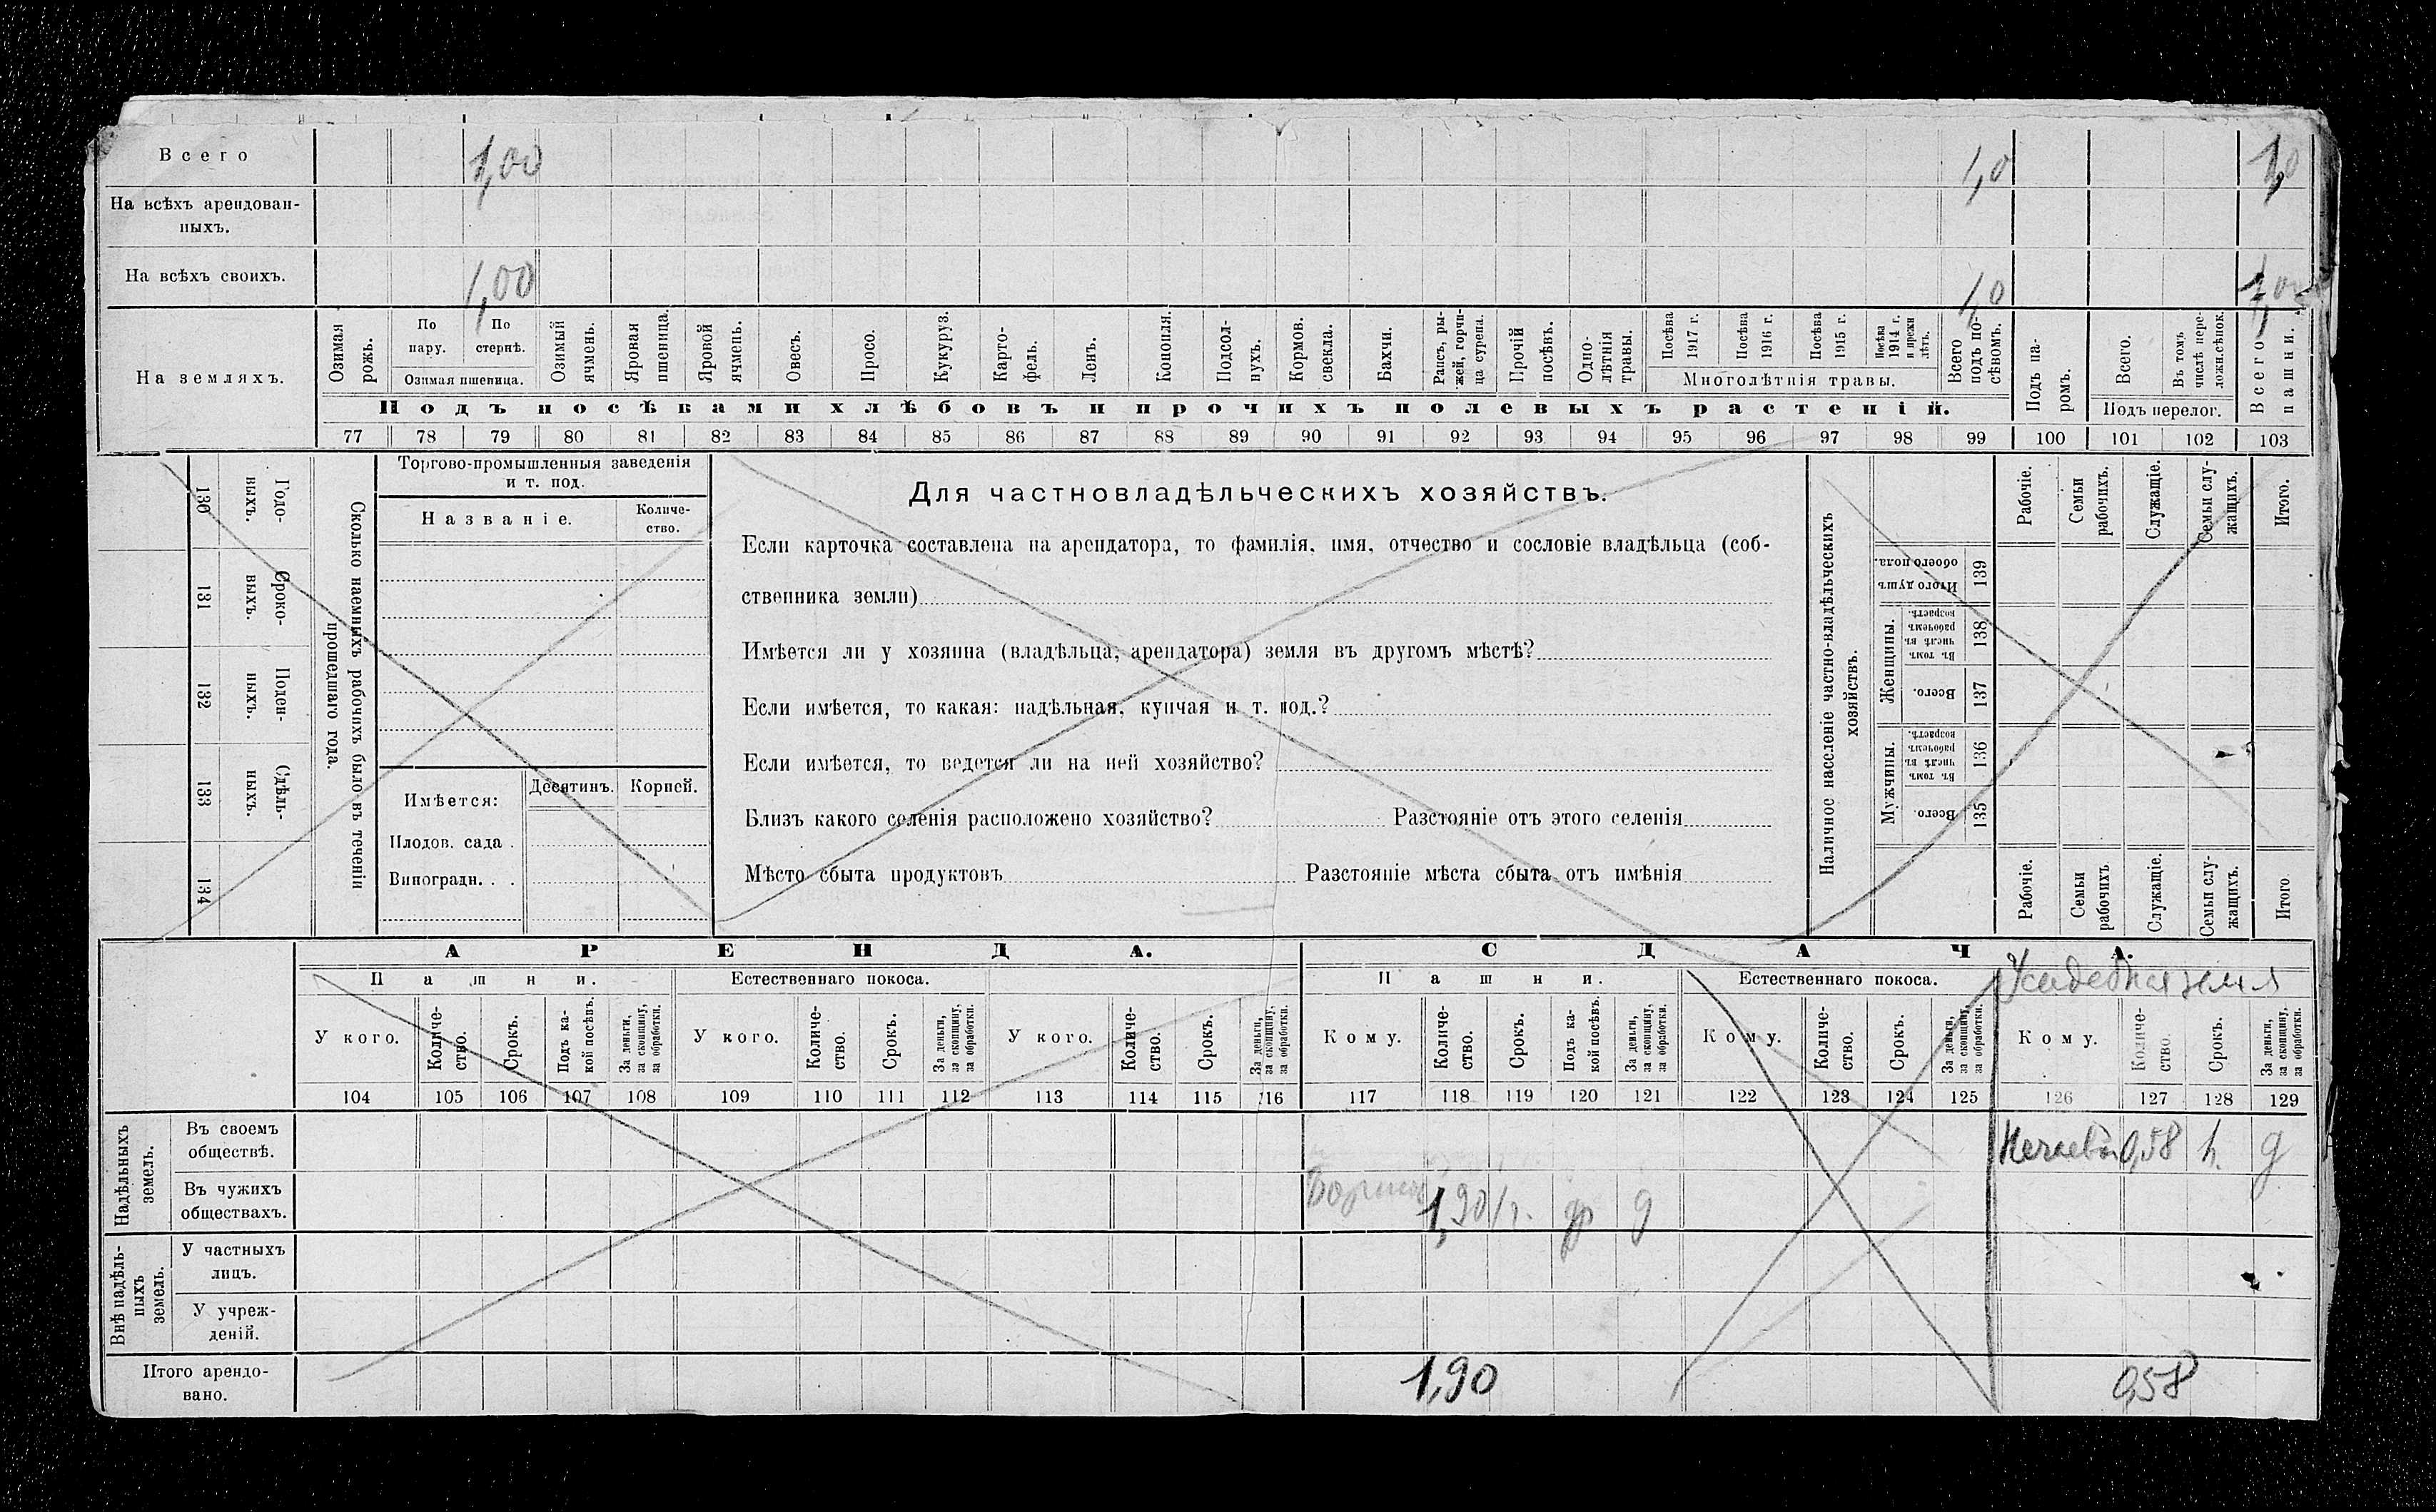 Всего 1,00 1,0 1,0
На всѣхъ арендован-
ныхъ.
На всѣхъ своихъ. 1,00 1,0 1,00
На земляхъ.
Озимая рожь.
По пару.
По стернѣ.
Озимая пшеница.
Озимый ячмень.
Яровая пшеница.
Яровой ячмень.
Овесъ.
Просо.
Кукуруз.
Карто-
фель.
Ленъ.
Конопля.
Подсол-
нухъ.
Кормов. свекла.
Бахчи.
Рапсъ, ры-
жей, горчи-
ца сурепа.
Прочій посѣвъ.
Одно-
лѣтнія травы.
Посѣва 1917 г.
Посѣва 1916 г.
Посѣва 1915 г.
Посѣва 1914 г. и прежн лѣтъ.
Многолѣтнія травы.
Всего подъ по-
сѣвомъ.
Подъ па-
ромъ.
Всего.
Въ томъ числѣ пере-
ложн.сѣнок.
Подъ перелог.
Всего пашни.
Подъ посѣвами хлѣбовъ и прочихъ полевыхъ растеній.
77 78 79 80 81 82 83 84 85 86 87 88 89 90 91 92 93 94 95 96 97 98 99 100 101 102 103
130 Годо-
ныхъ.
131 Сроко-
выхъ.
132 Поден-
ныхъ.
133 Сдѣль-
ныхъ.
134
Сколько наемныхъ рабочихъ было въ теченіи
прошедшаго года.
Торгово-промышленныя заведенія
и т. под.
Названіе.
Количе-
ство.
Имѣется:
Десятинъ. Корней.
Плодов. сада .
Виноградн. . .
Для частновладѣльческихъ хозяйствъ.
Если карточка составлена на арендатора, то фамилія, имя, отчество и сословіе владѣльца (соб-
ственника земли)
Имѣется ли у хозяина (владѣльца, арендатора) земля въ другомъ мѣстѣ?
Если имѣется, то какая: надѣльная, купчая и т. под.?
Если имѣется, то ведется ли на ней хозяйство?
Близъ какого селенія расположено хозяйство? Разстояніе отъ этого селенія
Мѣсто сбыта продуктовъ Разстояніе мѣста сбыта отъ имѣнія
Наличное населеніе частно-владѣльческихъ
хозяйствъ.
Рабочіе.
Семьи рабочихъ.
Служащіе.
Семьи слу-
жащихъ.
Итого.
Итого душъ обоего пола. 139
Женщины.
Въ томъ числѣ въ рабочемъ возрастѣ. 138
Всего. 137
Мужчины.
Въ томъ числѣ въ рабочемъ возрастѣ. 136
Всего. 135
Рабочіе.
Семьи рабочихъ
Служащіе.
Семьи слу-
жащихъ.
Итого
АРЕНДА. СДАЧА.
Пашни. Естественнаго покоса. Пашни. Естественнаго покоса. Усадебная земля
У кого.
Количе-
ство.
Срокъ.
Подъ ка-
кой посѣвъ.
За деньги, за скопщину, за обработки.
У кого.
Количе-
ство.
Срокъ.
За деньги, за скопщину, за обработки.
У кого.
Количе-
ство.
Срокъ.
За деньги, за скопщину, за обработки.
Кому.
Количе-
ство.
Срокъ.
Подъ ка-
кой посѣвъ.
За деньги, за скопщину, за обработки.
Кому.
Количе-
ство.
Срокъ.
За деньги, за скопщину, за обработки.
Кому.
Количе-
ство.
Срокъ.
За деньги, за скопщину, за обработки.
104 105 106 107 108 109 110 111 112 113 114 115 116 117 118 119 120 121 122 123 124 125 126 127 128 129
Надѣльныхъ земель.
Въ своемъ
обществѣ. 0,58 д
Въ чужихъ
обществахъ. 1,90 1 г. д
Внѣ надѣль-
ныхъ земель.
У частныхъ
лицъ.
У учреж-
деній.
Итого арендо-
вано. 1,90 0,58